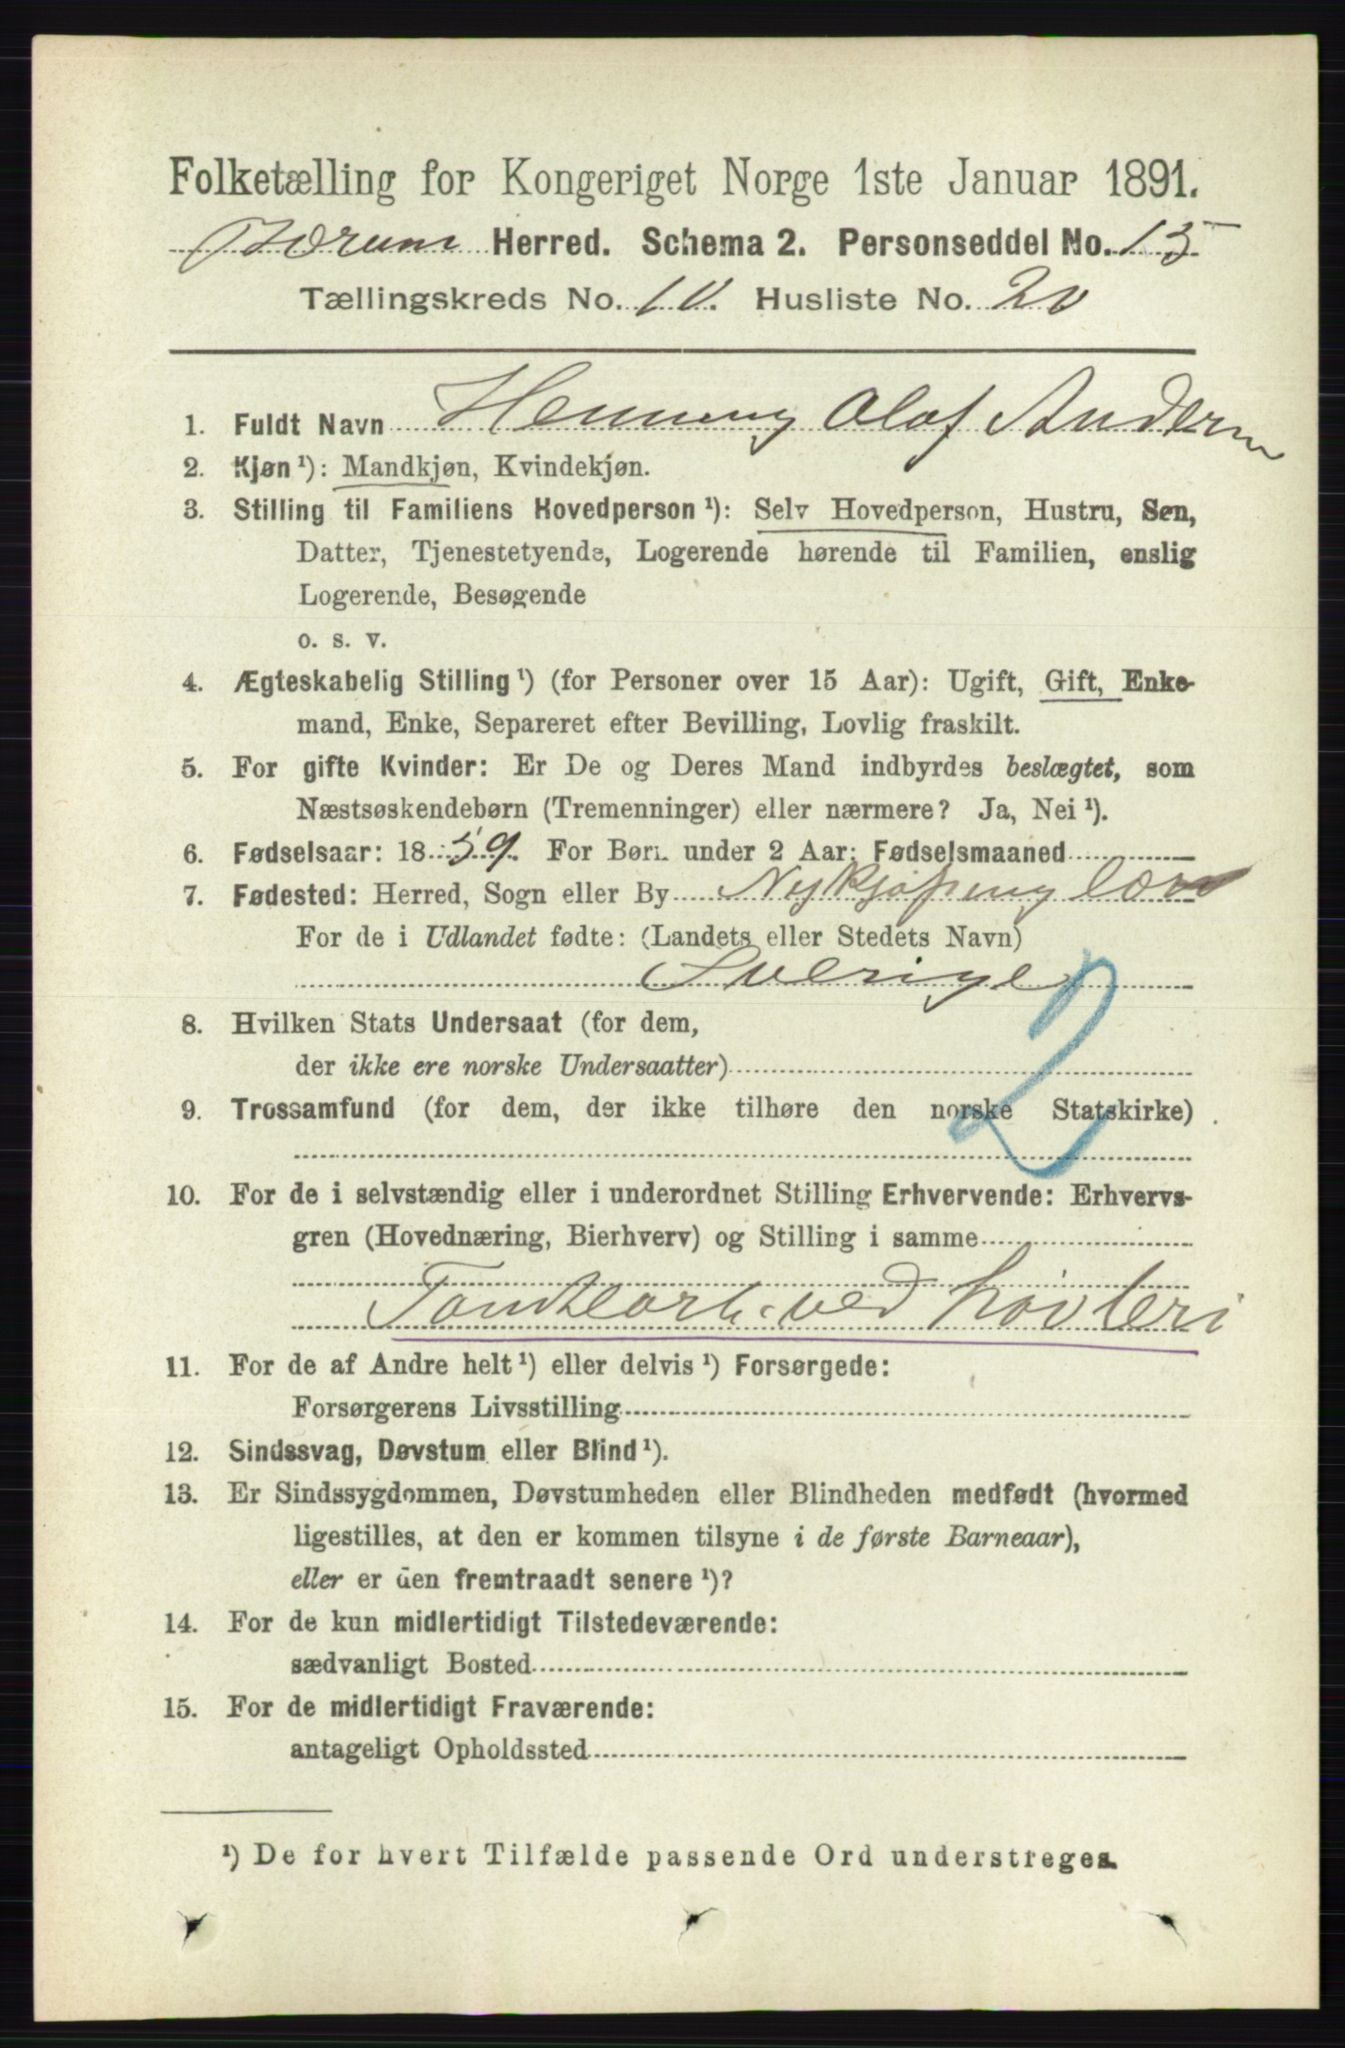 Folketælling for Kongeriget Norge 1ste Januar 1891.
Bærum Herred. Schema 2. Personseddel No. 15
Tællingskreds No. 10. Husliste No. 20
1. Fuldt Navn Henning Olof Andersn
2. Kjøn ¹): Mandkjøn, Kvindekjøn.
3. Stilling til Familiens Hovedperson ¹): Selv Hovedperson, Hustru, Søn,
Datter, Tjenestetyende, Logerende hørende til Familien, enslig
Logerende, Besøgende
o. s. v.
4. Ægteskabelig Stilling ¹) (for Personer over 15 Aar): Ugift, Gift, Enke-
mand, Enke, Separeret efter Bevilling, Lovlig fraskilt.
5. For gifte Kvinder: Er De og Deres Mand indbyrdes beslægtet, som
Næstsøskendebørn (Tremenninger) eller nærmere? Ja, Nei ¹).
6. Fødselsaar: 1859. For Børn under 2 Aar: Fødselsmaaned
7. Fødested: Herred, Sogn eller By Nykjøping læn
For de i Udlandet fødte: (Landets eller Stedets Navn)
Sverige
2
8. Hvilken Stats Undersaat (for dem,
der ikke ere norske Undersaatter)
9. Trossamfund (for dem, der ikke tilhøre den norske Statskirke)
10. For de i selvstændig eller i underordnet Stilling Erhvervende: Erhvervs-
gren (Hovednæring, Bierhverv) og Stilling i samme
Tomtearb. ved høvleri
11. For de af Andre helt ¹) eller delvis ¹) Forsørgede:
Forsørgerens Livsstilling
12. Sindssvag, Døvstum eller Blind ¹).
13. Er Sindssygdommen, Døvstumheden eller Blindheden medfødt (hvormed
ligestilles, at den er kommen tilsyne i de første Barneaar),
eller er den fremtraadt senere ¹)?
14. For de kun midlertidigt Tilstedeværende:
sædvanligt Bosted
15. For de midlertidigt Fraværende:
antageligt Opholdssted
¹) De for hvert Tilfælde passende Ord understreges.